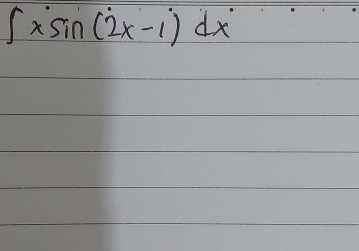 ∫ x sin (2x-1) dx